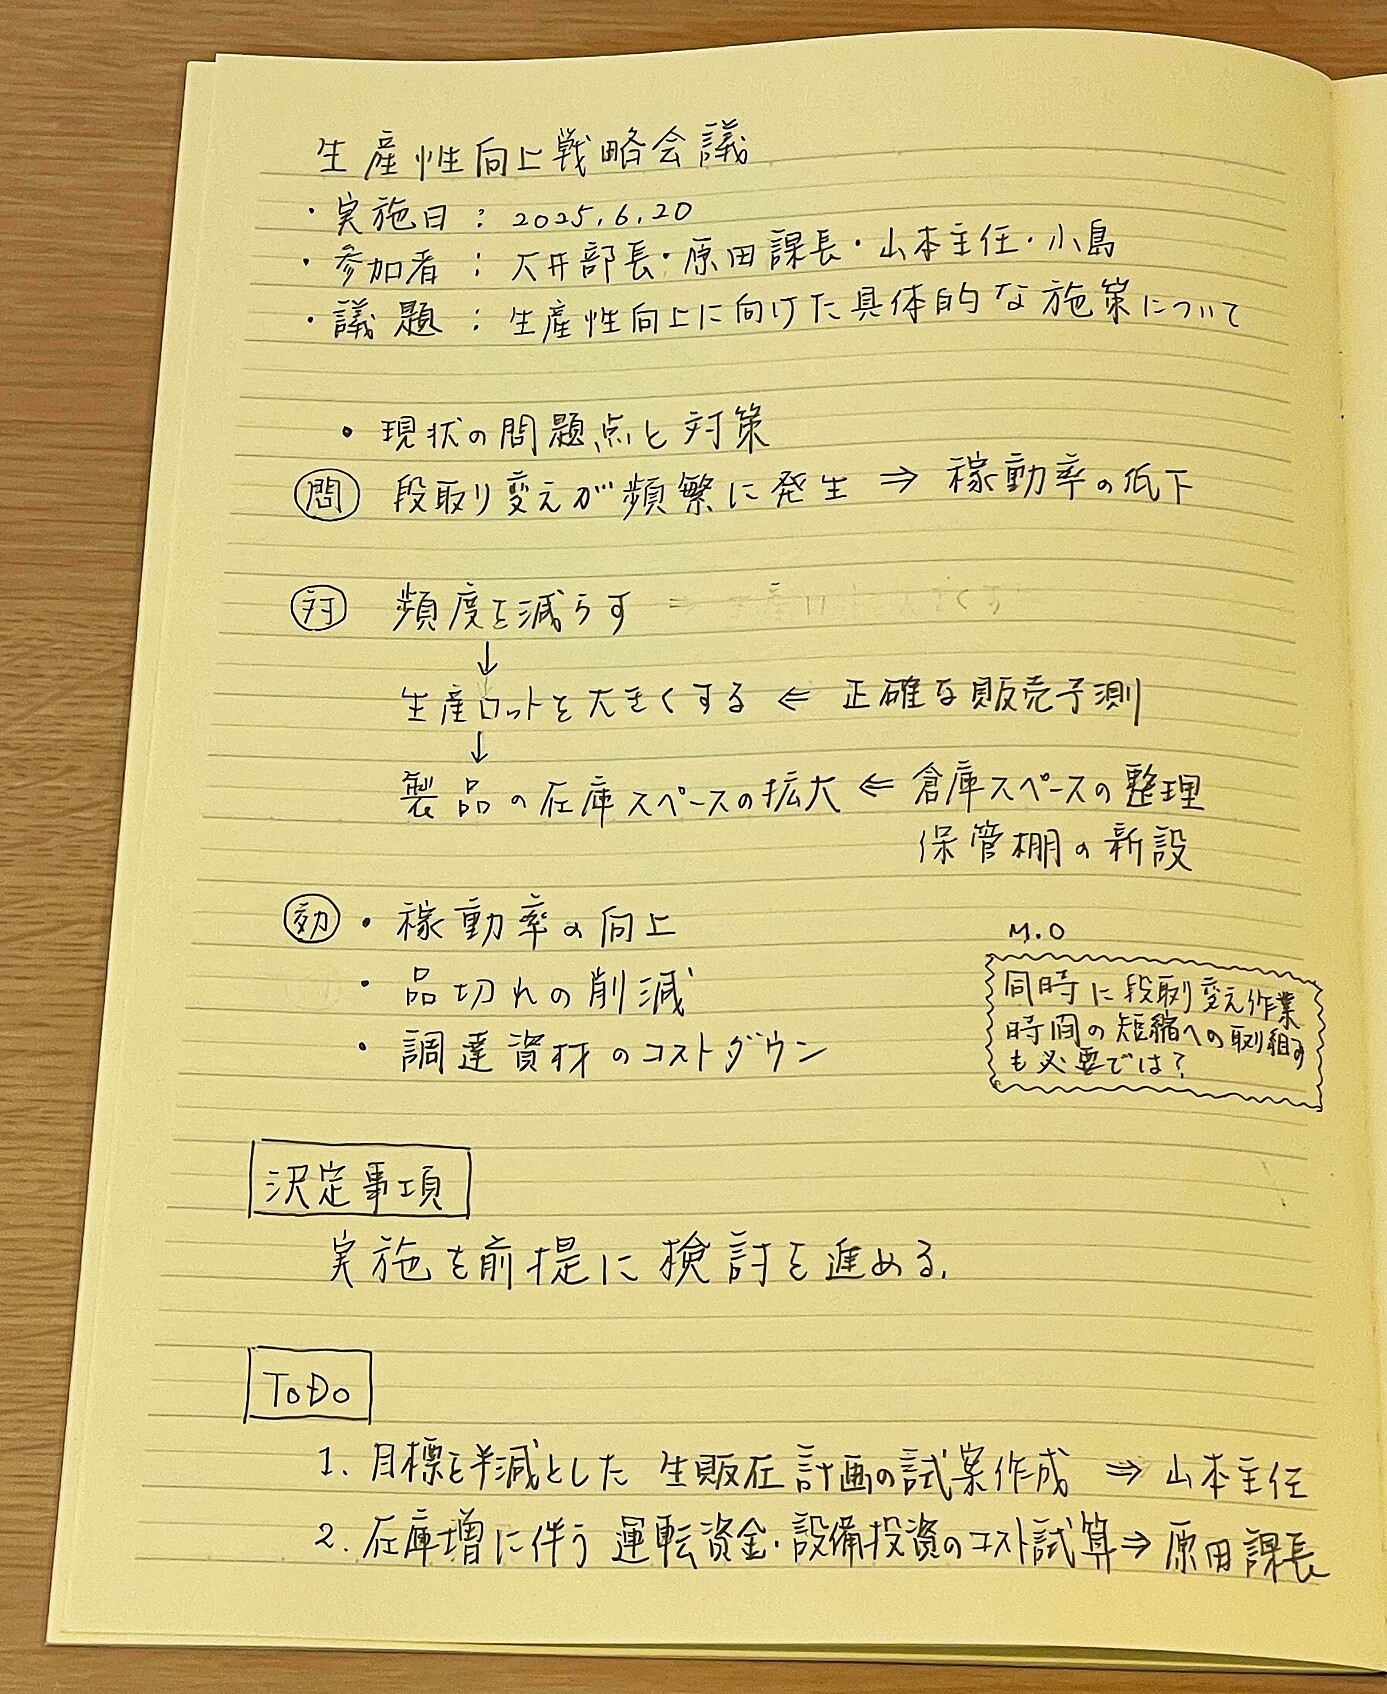 生産性向上戦略会議
・実施日：2025.6.20
・参加者：大井部長・原田課長・山本主任・小島
・議題：生産性向上に向けた具体的な施策について
・現状の問題点と対策
問 段取り変えが頻繁に発生 ⇒ 稼動率の低下
対 頻度を減らす
↓
生産ロットを大きくする ⇐ 正確な販売予測
↓
製品の在庫スペースの拡大 ⇐ 倉庫スペースの整理
保管棚の新設
効 ・稼動率の向上
・品切れの削減
・調達資材のコストダウン
M.O
同時に段取り変え作業
時間の短縮への取り組み
も必要では?
決定事項
実施を前提に検討を進める.
ToDo
1. 目標を半減とした 生販在計画の試案作成 ⇒ 山本主任
2. 在庫増に伴う 運転資金・設備投資のコスト試算 ⇒ 原田課長